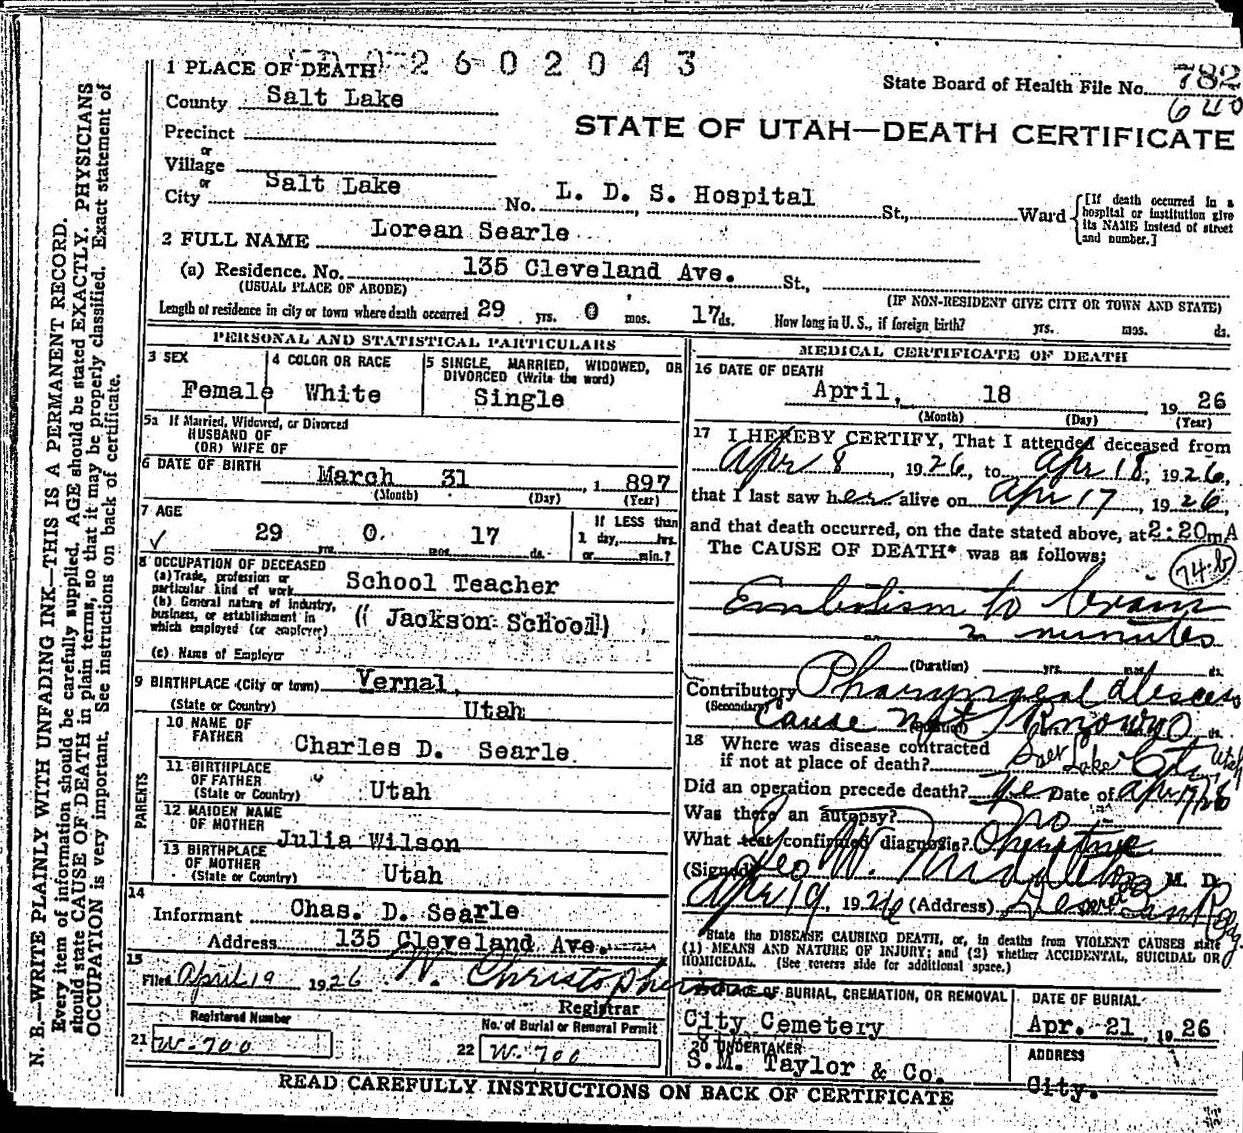 2602043
1 PLACE OF DEATH
State Board of Health File No. 782
640
County Salt Lake
STATE OF UTAH—DEATH CERTIFICATE
Precinct
or
Village
or
City Salt Lake No. L. D. S. Hospital St., Ward
[If death occurred in a hospital or institution give its NAME instead of street and number.]
2 FULL NAME Lorean Searle
(a) Residence. No. 135 Cleveland Ave. St.,
(USUAL PLACE OF ABODE) (IF NON-RESIDENT GIVE CITY OR TOWN AND STATE)
Length of residence in city or town where death occurred 29 yrs. 0 mos. 17 ds. How long in U. S., if foreign birth? yrs. mos. ds.
PERSONAL AND STATISTICAL PARTICULARS
3 SEX
Female
4 COLOR OR RACE
White
5 SINGLE, MARRIED, WIDOWED, OR DIVORCED (Write the word)
Single
5a If Married, Widowed, or Divorced
HUSBAND OF
(OR) WIFE OF
6 DATE OF BIRTH
March 31 , 1 897
(Month) (Day) (Year)
7 AGE
29 yrs. 0 mos. 17 ds.
If LESS than
1 day, hrs.
or min.?
8 OCCUPATION OF DECEASED
(a) Trade, profession or particular kind of work School Teacher
(b) General nature of industry, business, or establishment in which employed (or employer) (( Jackson School)
(c) Name of Employer
9 BIRTHPLACE (City or town) Vernal,
(State or Country) Utah
PARENTS
10 NAME OF FATHER Charles D. Searle.
11 BIRTHPLACE OF FATHER (State or Country) Utah
12 MAIDEN NAME OF MOTHER Julia Wilson
13 BIRTHPLACE OF MOTHER (State or Country) Utah
14
Informant Chas. D. Searle
Address 135 Cleveland Ave.
15
Filed April 19 1926 W. Christopherson
Registrar
Registered Number
21 W-700
No. of Burial or Removal Permit
22 W-700
MEDICAL CERTIFICATE OF DEATH
16 DATE OF DEATH
April, 18 19 26
(Month) (Day) (Year)
17 I HEREBY CERTIFY, That I attended deceased from
Apr 8, 1926, to Apr 18, 1926,
that I last saw her alive on Apr 17, 1926
and that death occurred, on the date stated above, at 2:20 m A
The CAUSE OF DEATH* was as follows:
74-b
Embolism to brain
2 minutes
(Duration) yrs. mos. ds.
Contributory Pharyngeal abscess
(Secondary) Cause not known
18 Where was disease contracted
if not at place of death? Salt Lake City Utah
Did an operation precede death? Yes Date of Apr 17/26
Was there an autopsy? No
What test confirmed diagnosis? Operative
(Signed) Geo W. Middleton M. D.
Apr 19, 1926 (Address) Deseret Bank Bldg.
State the DISEASE CAUSING DEATH, or, in deaths from VIOLENT CAUSES state
(1) MEANS AND NATURE OF INJURY; and (2) whether ACCIDENTAL, SUICIDAL OR
HOMICIDAL. (See reverse side for additional space.)
OF BURIAL, CREMATION, OR REMOVAL
City Cemetery
DATE OF BURIAL
Apr. 21 , 19 26
20 UNDERTAKER
S.M. Taylor & Co.
ADDRESS
City.
READ CAREFULLY INSTRUCTIONS ON BACK OF CERTIFICATE
N. B.—WRITE PLAINLY WITH UNFADING INK—THIS IS A PERMANENT RECORD.
Every item of information should be carefully supplied. AGE should be stated EXACTLY. PHYSICIANS
should state CAUSE OF DEATH in plain terms, so that it may be properly classified. Exact statement of
OCCUPATION is very important. See instructions on back of certificate.